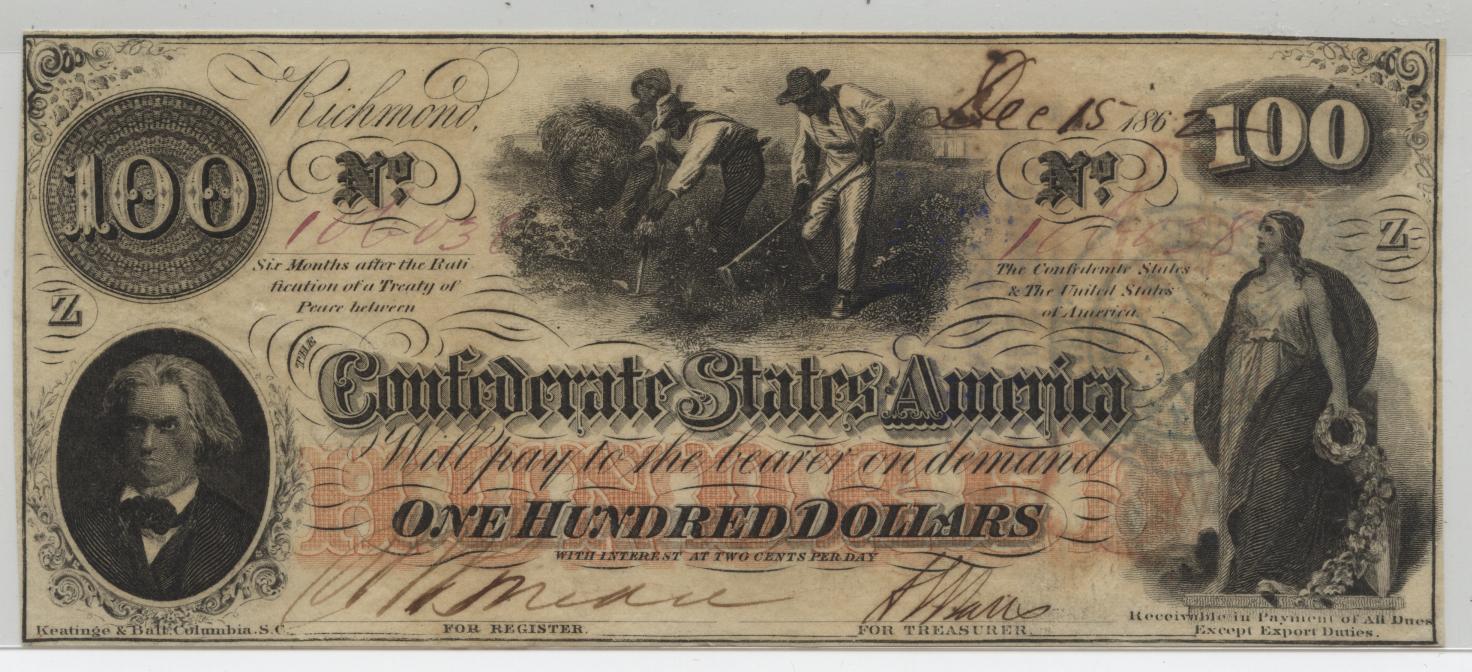 Richmond,
Dec 15 1862
100
100
No
No
Z
Six Months after the Rati
fication of a Treaty of
Peace between
The Confederate States
& The United States
of America
Z
THE
Confederate States America
Will pay to the bearer on demand
HUNDRED
ONE HUNDRED DOLLARS
WITH INTEREST AT TWO CENTS PER DAY
Keatinge & Ball Columbia. S.C.
FOR REGISTER.
FOR TREASURER.
Receivable in Payment of All Dues
Except Export Duties.